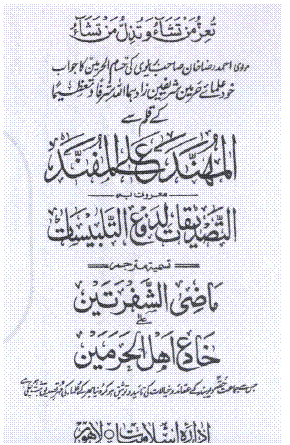 تُعِزُّ مَنْ تَشَآءُ وَتُذِلُّ مَنْ تَشَآءُ
مولوی احمد رضا خان صاحب بریلوی کی حسام الحرمین کا جواب
خود علمائے حرمین شریفین زادہما اللہ شرفا و تعظیما
کے قلم سے
المهند على المفند
معروف بہ
التصديقات لدفع التلبيسات
ترجمہ
ماضى الشفرتين
على
خادع اهل الحرمين
ادارہ اسلامیات لاہور